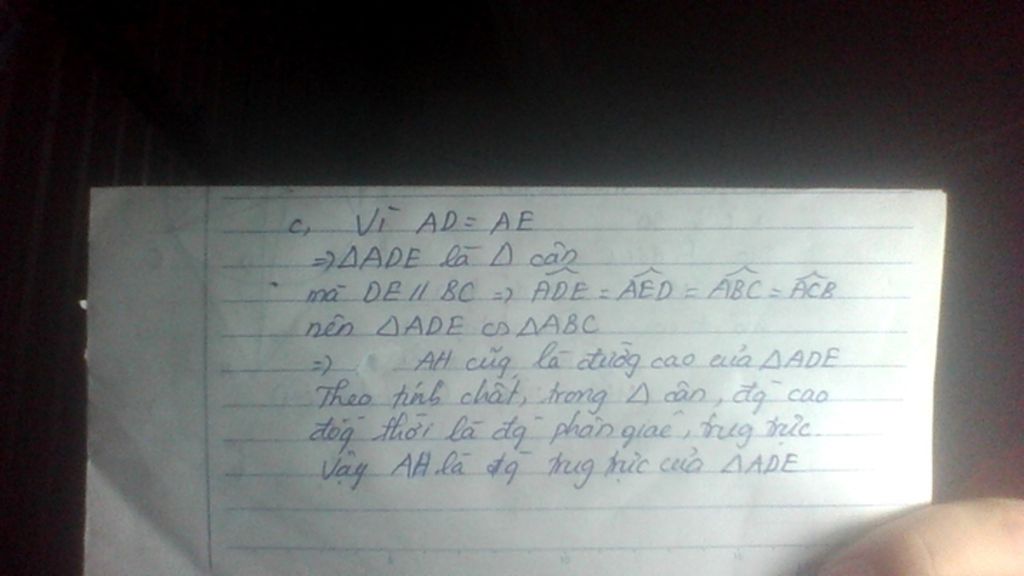 c, Vì AD = AE
=> ΔADE là Δ cân
mà DE // BC => \widehat{ADE} = \widehat{AED} = \widehat{ABC} = \widehat{ACB}
nên ΔADE ∽ ΔABC
=> AH cũg là đườg cao của ΔADE
Theo tính chất, trong Δ cân, đg cao
đồg thời là đg phân giác, trug trực.
Vậy AH là đg trug trực của ΔADE